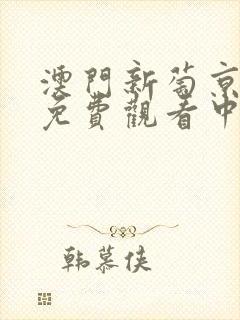 澳門新葡京
免費觀看中
韩慕侠